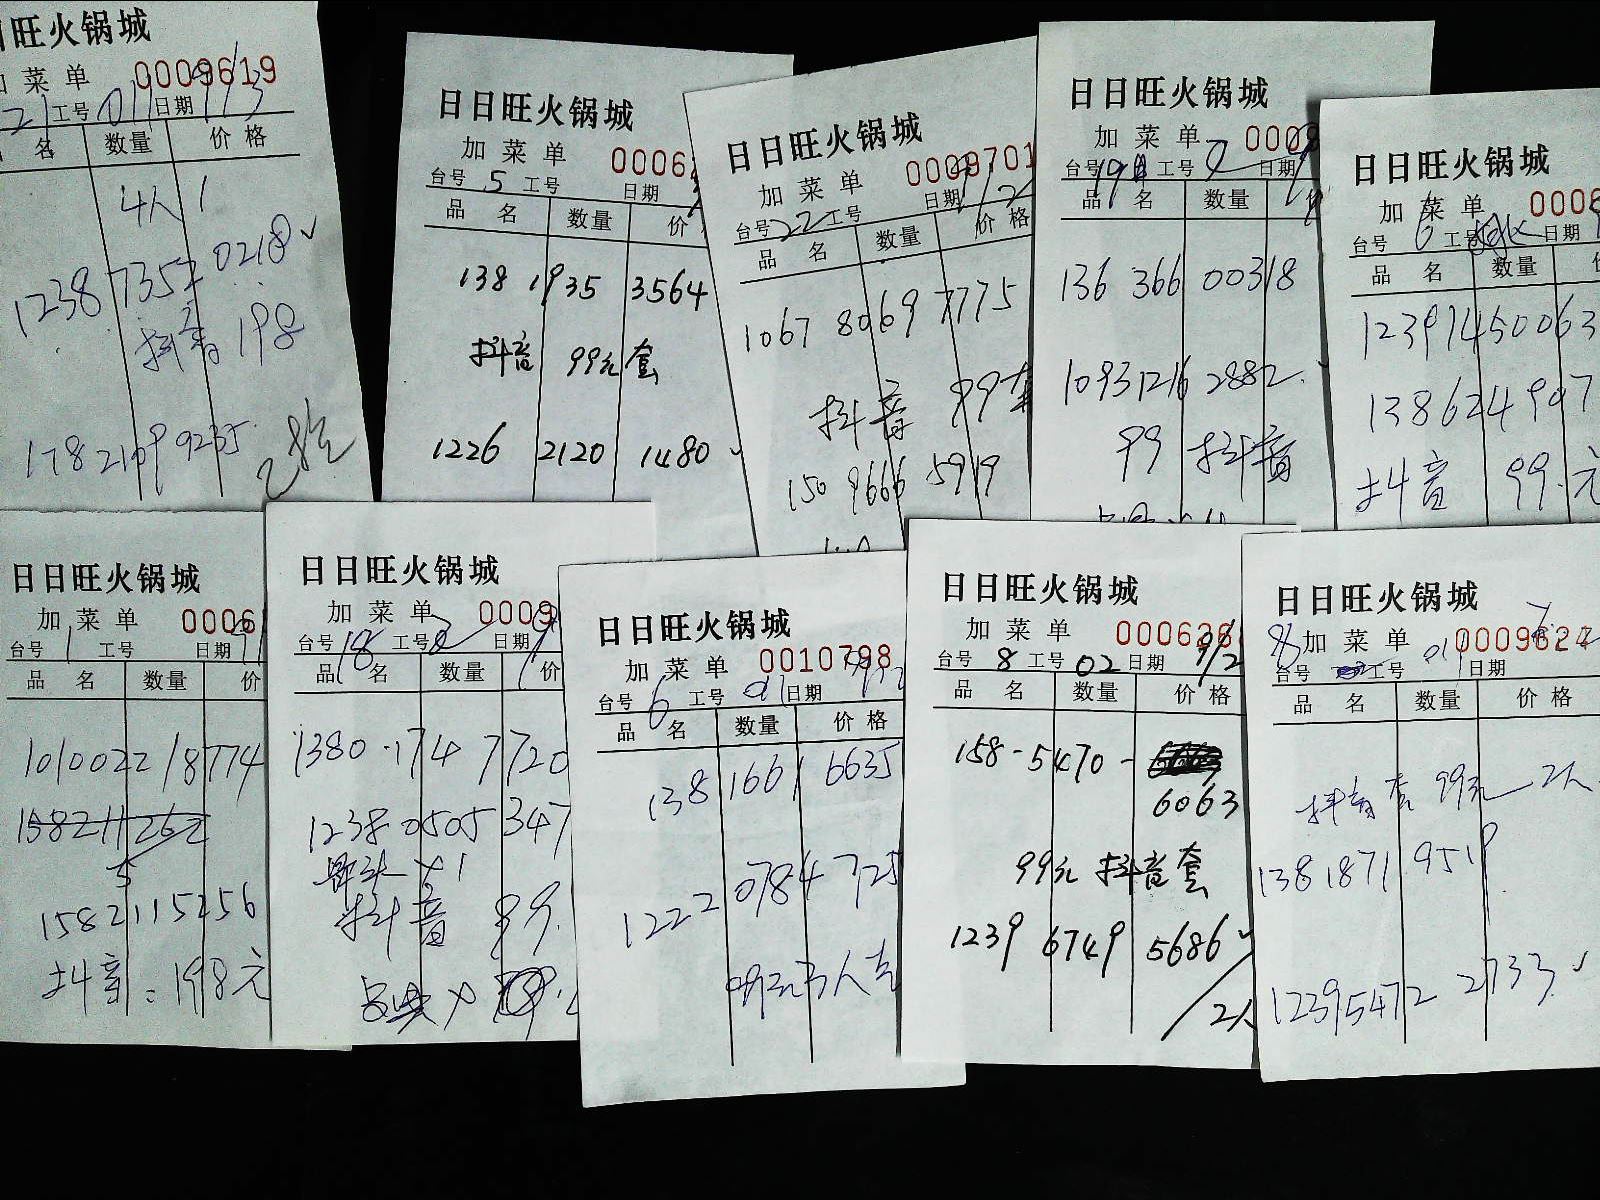 日旺火锅城
加菜单 0009619
21 工号 011 日期 9/3
名 数量 价格
4人 1
1238 7352 0218
抖音 198
178 2109 9235
日日旺火锅城
加菜单 0006
台号 5 工号 日期
品名 数量 价
138 1935 3564
抖音 99元套
1226 2120 1480
日日旺火锅城
加菜单 0009701
台号 22 工号 日期 9/2
品名 数量 价格
1067 8069 7775
抖音 99套
150 9666 5919
日日旺火锅城
加菜单 000
台号 19 工号 2 日期
品名 数量
136 366 00318
1093 1216 2882
99 抖音
日日旺火锅城
加菜单 0006
台号 6 工号 日期
品名 数量
12391450063
138624907
抖音 99.元
日日旺火锅城
加菜单 0006
台号 1 工号 日期
品名 数量 价
1010022 18774
158211262
5
15821115256
抖音:198元
日日旺火锅城
加菜单 0009
台号 18 工号 2 日期
品名 数量 价
1380 174 7720
1238 0505 347
x1
抖音 99.
日日旺火锅城
加菜单 0010798
台号 6 工号 011 日期
品名 数量 价格
138 1661 6635
1222 0784 725
日日旺火锅城
加菜单 000626
台号 8 工号 02 日期 9/2
品名 数量 价格
158-5470-
6063
99元 抖音套
1239 6749 5686
2人
日日旺火锅城
加菜单 0009624
台号 工号 011 日期
品名 数量 价格
抖音套 99元 2人
138 1871 9519
12395472 2733